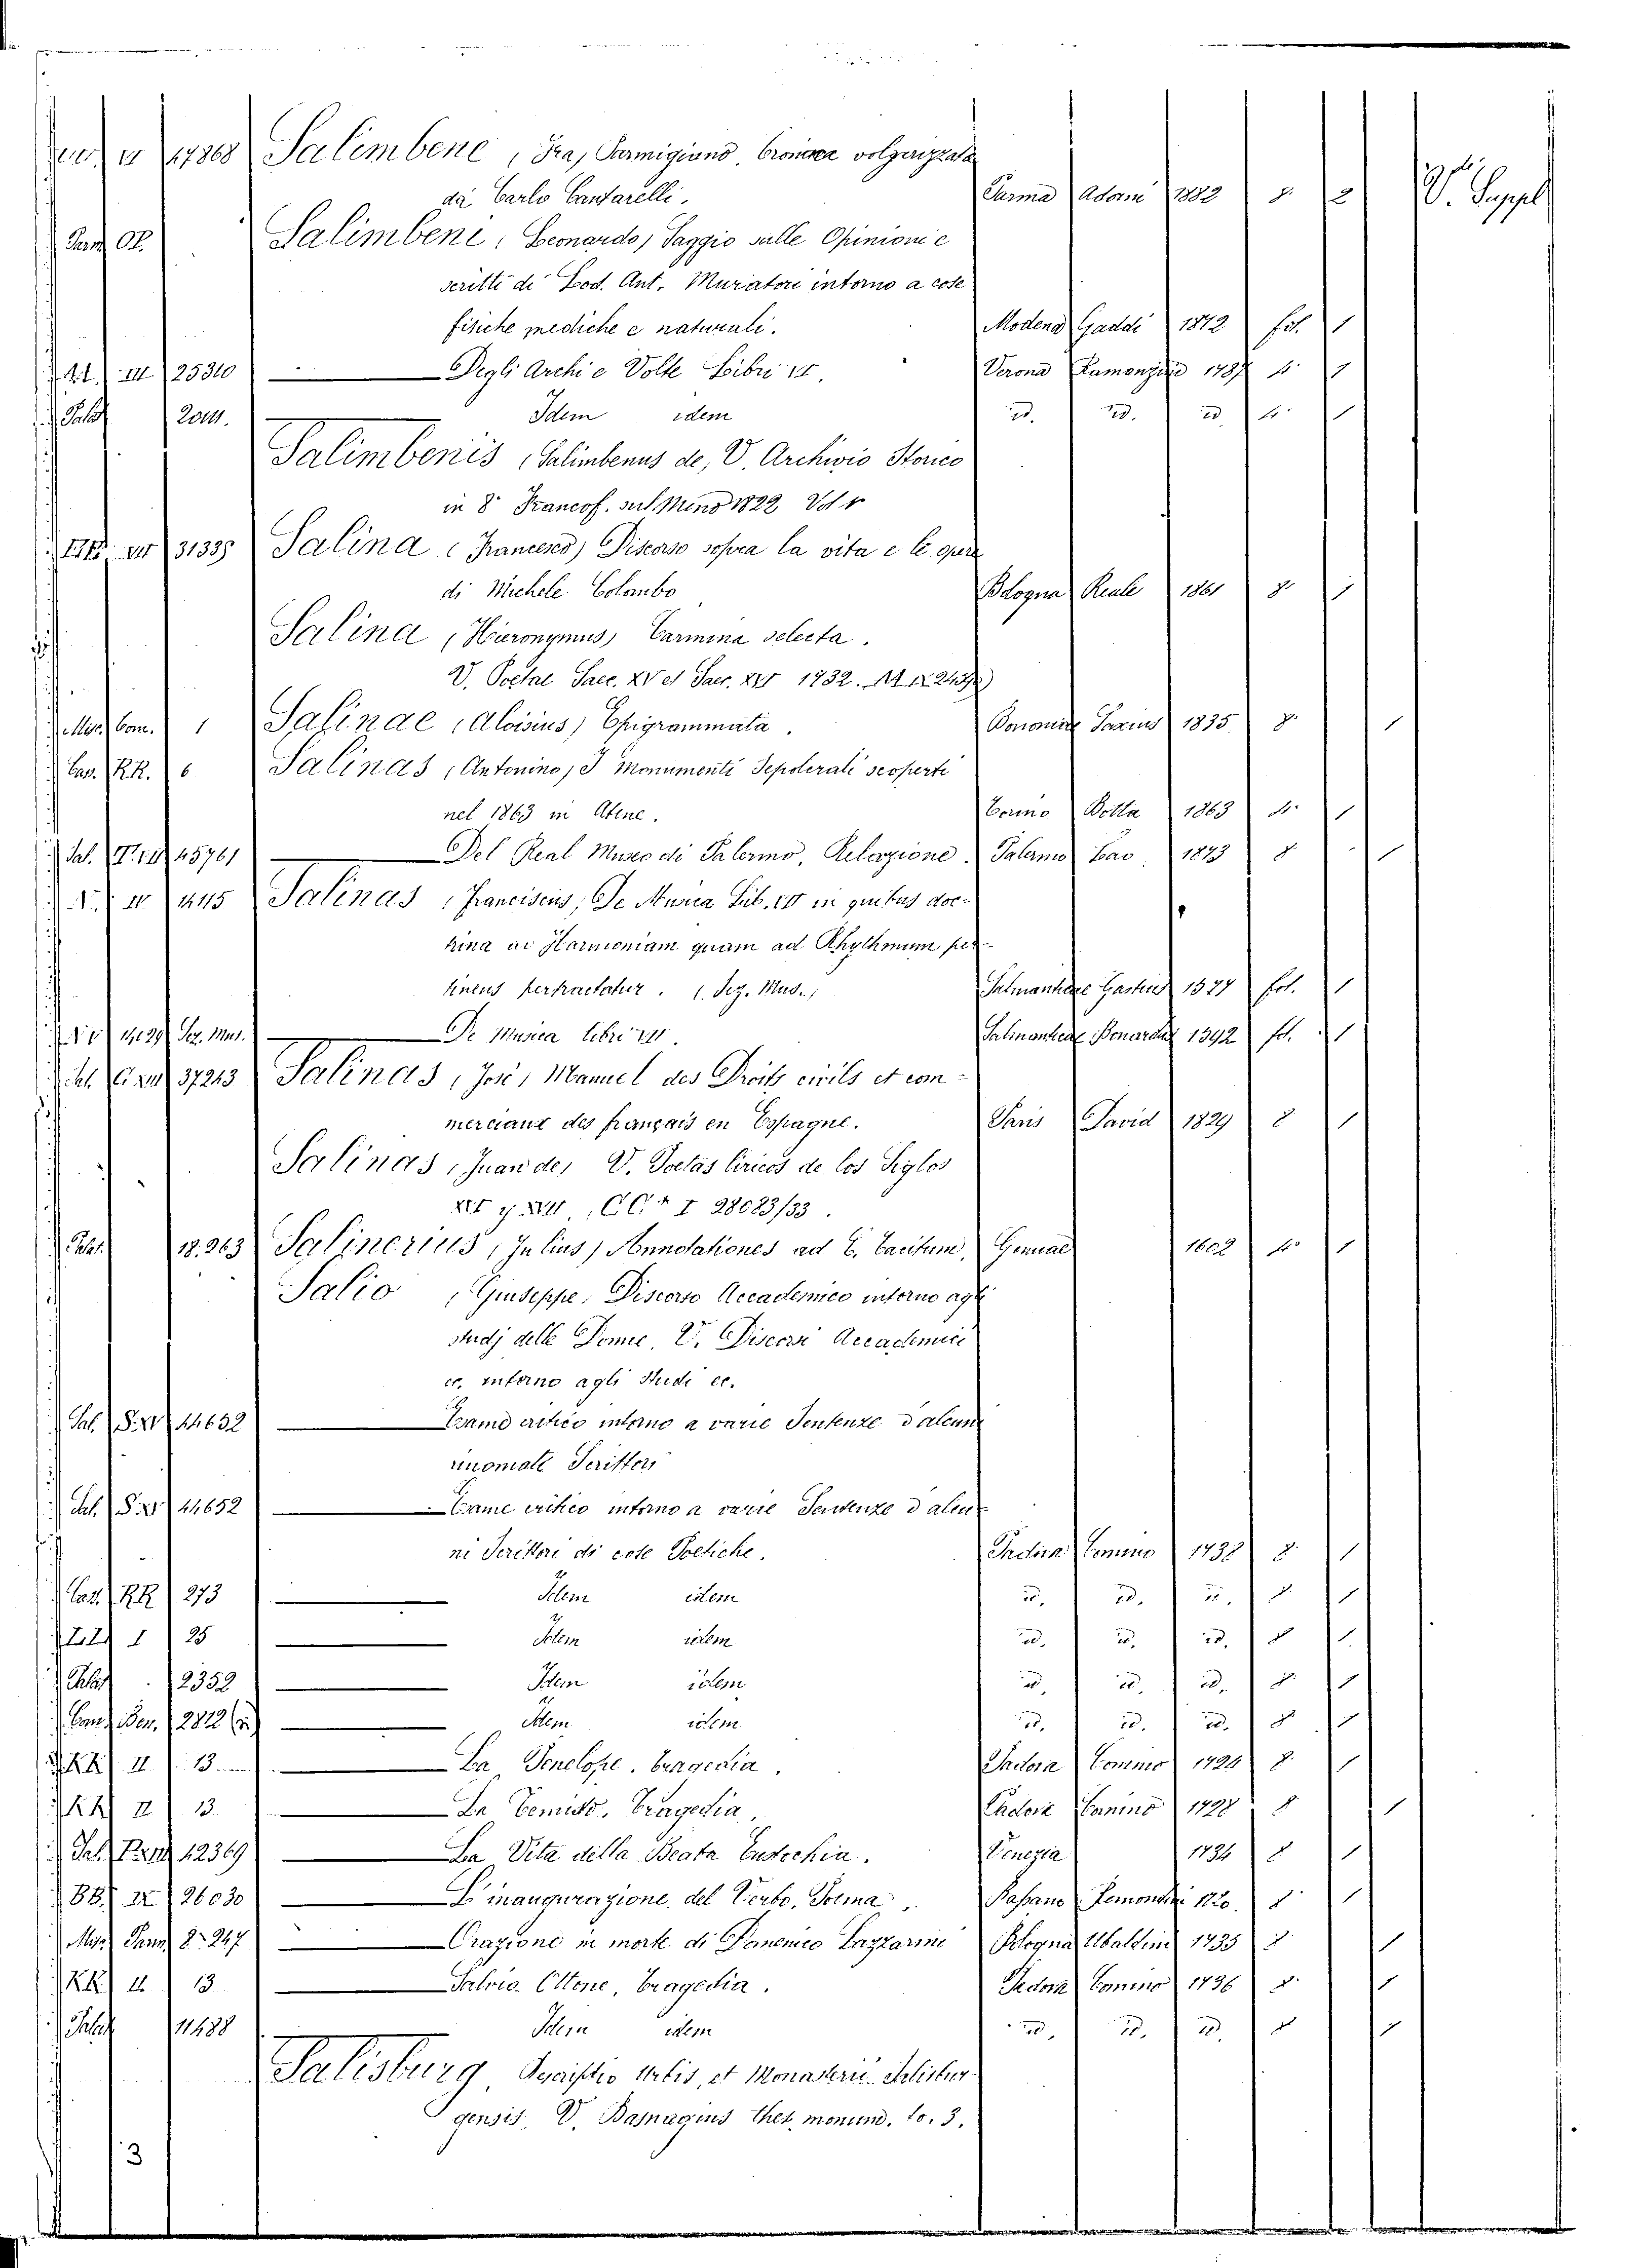 47868 Salimbene, Fra, Parmigiano, Cronaca volgarizzata
da Carlo Cantarelli. Parma Adorni 1882 8. 2 V. Suppl
Salimbeni, Leonardo, Saggio sulle Opinioni e
scritti di Lod. Ant. Muratori intorno a cose
fisiche mediche e naturali. Modena Gaddi 1872 fol. 1
25310 Degli Archi e Volte Libri VI. Verona Ramanzini 1787 4. 1
Palat 20111. Idem idem id. id. id. 4. 1
Salimbenis, Salimbenus de, V. Archivio Storico
in 8° Francof. sul Meno 1822 Vol.
31335 Salina (Francesco) Discorso sopra la vita e le opere
di Michele Colombo Bologna Reale 1861 8. 1
Salina, Hieronymus, Carmina selecta.
V. Poetae Saec. XV et Saec. XVI 1732.
Misc. Com. 1 Salinae (Aloisius) Epigrammata. Bononiae 1835 8. 1
Cas. RR. 6 Salinas, Antonino, I Monumenti Sepolcrali scoperti
nel 1863 in Atene. Torino Botta 1863 4. 1
Sal. 45761 Del Real Museo di Palermo, Relazione. Palermo Lao 1873 8 1
Salinas, Franciscus, De Musica Lib. VII in quibus doc-
trina ad Harmoniam quam ad Rhythmum per-
tinens pertractatur. (Sez. Mus.) Salmanticae Gastius 1577 fol. 1
Sez. Mus. De Musica libri VII. Salmanticae 1592 fol. 1
Sal. 37213 Salinas, José, Manuel des Droits civils et com-
merciaux des français en Espagne. Paris David 1829 8 1
Salinas, Juan de, V. Poetas liricos de los Siglos
XVI y XVII, CC* I 28083/33.
Palat. 18.263 Salinerius, Julius, Annotationes ad C. Tacitum, Genuae 1602 4° 1
Salio, Giuseppe, Discorso Accademico intorno agli
studj delle Donne, V. Discorsi Accademici
ec. intorno agli studi ec.
Sal. 44652 Esame critico intorno a varie Sentenze d'alcuni
rinomati Scrittori
Sal. 44652 Esame critico intorno a varie Sentenze d'alcu-
ni Scrittori di cose Poetiche. Padova Comino 1738 8. 1
Cas. RR 273 Idem idem id. id. id. 8. 1
25 Idem idem id. id. id. 8 1
Palat 2352 Idem idem id. id. id. 8. 1
2812 Idem idem id. id. id. 8 1
KK II 13 La Penelope, tragedia. Padova Comino 1724 8. 1
KK II 13. La Temisto, Tragedia. Padova Comino 1728 8 1
Sal. 12369 La Vita della Beata Eustochia. Venezia 1734 8 1
BB. IX 26030 L'inaugurazione del Verbo, Poema. Bassano Remondini 8 1
Misc. Parm. 8° 247 Orazione in morte di Domenico Lazzarini Bologna Ubaldini 1735 8 1
KK II 13 Salvio Ottone, Tragedia. Padova Comino 1736 8. 1
Palat 11488 Idem idem id. id. id. 8 1
Salisburg, Descriptio Urbis, et Monasterii Salisbur-
gensis, V. Basnagius Thes. monum. to. 3.
3